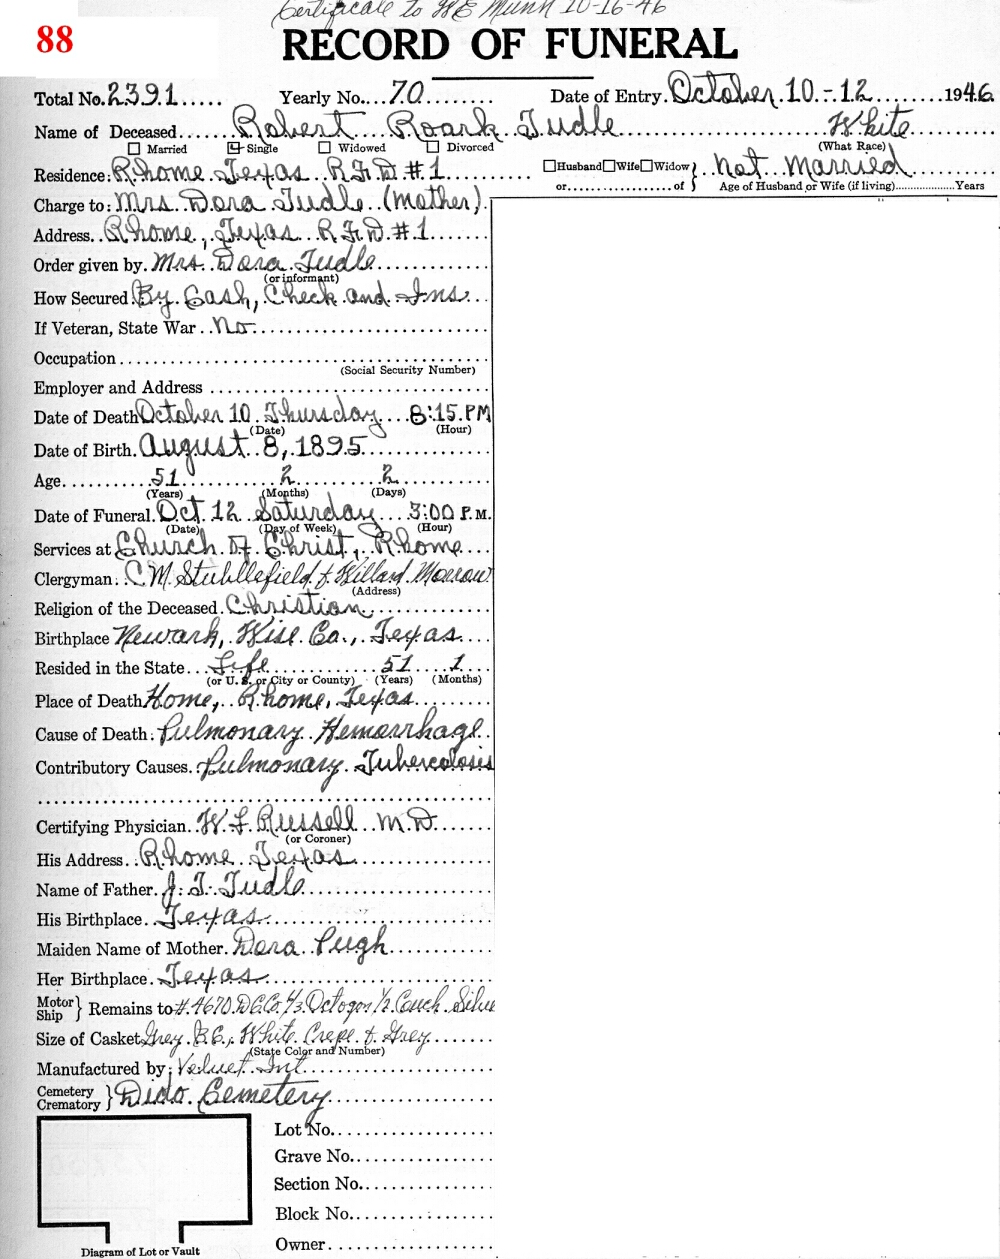 Certificate to WE Munn 10-16-46
88
RECORD OF FUNERAL
Total No. 2391..... Yearly No.... 70........ Date of Entry. October 10-12........ 1946
Name of Deceased...... Robert Roark Tudle White
☐ Married ☐ Single ☐ Widowed ☐ Divorced (What Race)
Residence: Rhome Texas R.F.D #1 ☐Husband☐Wife☐Widow} Not Married
or....................of } Age of Husband or Wife (if living)..................Years
Charge to: Mrs. Dora Tudle (Mother)
Address.. Rhome, Texas R.F.D. #1
Order given by. Mrs. Dora Tudle
(or informant)
How Secured. By Cash, Check and Ins.
If Veteran, State War.. No
Occupation
(Social Security Number)
Employer and Address
Date of Death October 10 Thursday 8:15 PM
(Date) (Hour)
Date of Birth. August 8, 1895
Age 51 2 2
(Years) (Months) (Days)
Date of Funeral. Oct. 12 Saturday 3:00 P.M.
(Date) (Day of Week) (Hour)
Services at Church Of Christ, Rhome
Clergyman. C.M. Stubblefield & Willard Morrow
(Address)
Religion of the Deceased. Christian
Birthplace Newark, Wise Co., Texas
Resided in the State... Life 51 1
(or U. S. or City or County) (Years) (Months)
Place of Death Home, Rhome, Texas
Cause of Death: Pulmonary Hemorrhage
Contributory Causes. Pulmonary Tuberculosis
Certifying Physician.. W. F. Russell M.D.
(or Coroner)
His Address.. Rhome Texas
Name of Father. J. T. Tudle
His Birthplace.. Texas
Maiden Name of Mother. Dora Pugh
Her Birthplace. Texas
Motor
Ship } Remains to #4670 D.C.Co. 6/3 Octogon 1/2 Couch Silver
Size of Casket Grey B.C., White Crepe & Grey
(State Color and Number)
Manufactured by: Velvet Int.
Cemetery
Crematory } Dido Cemetery
Lot No.
Grave No.
Section No.
Block No.
Owner
Diagram of Lot or Vault